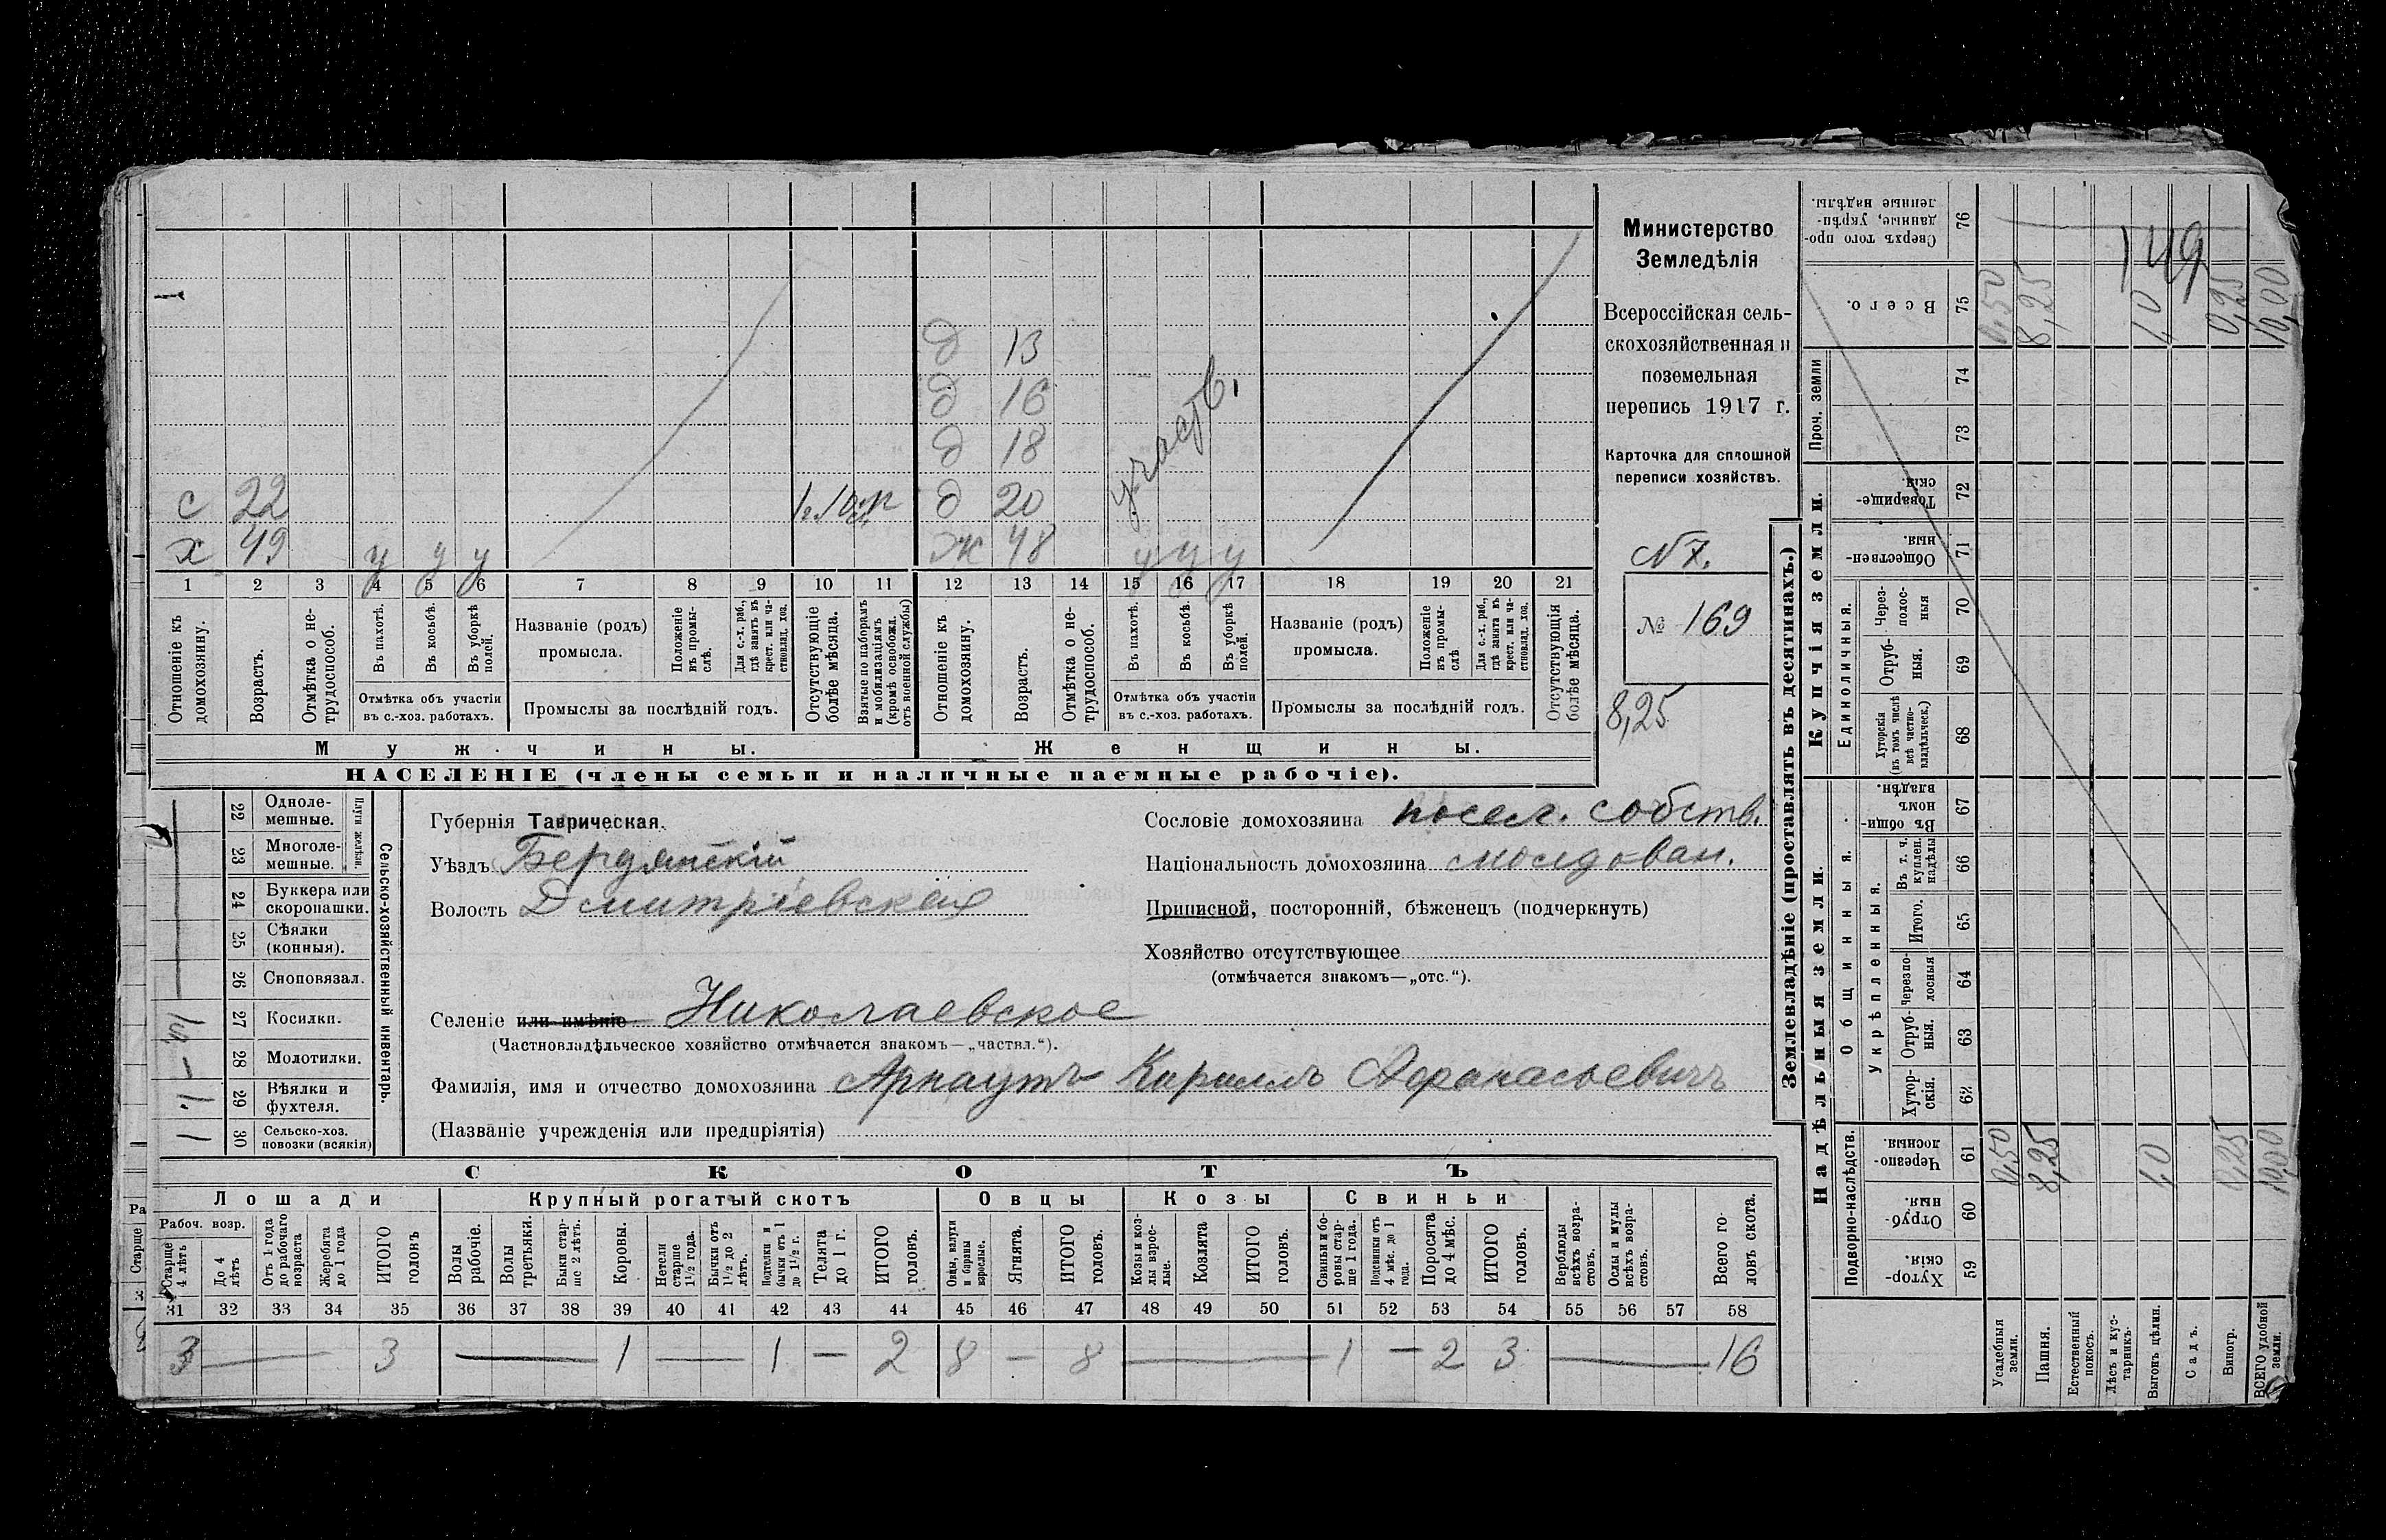 Министерство
Земледѣлія
Всероссійская сель-
скохозяйственная и
поземельная
перепись 1917 г.
Карточка для сплошной
переписи хозяйствъ.
N 7.
№ 169
8,25
149
д 13
д 16
д 18
с 22 д 20
х 49 у у у ж 48 у у у
участв.
1 2 3 4 5 6 7 8 9 10 11 12 13 14 15 16 17 18 19 20 21
Отношеніе къ домохозяину.
Возрастъ.
Отмѣтка о не-трудоспособ.
Въ пахотѣ.
Въ косьбѣ.
Въ уборкѣ полей.
Отмѣтка объ участіи
въ с.-хоз. работахъ.
Названіе (родъ)
промысла.
Положеніе въ промы-слѣ.
Для с.-х. раб., гдѣ занятъ въ крест. или ча-стновлад. хоз.
Промыслы за послѣдній годъ.
Отсутствующіе болѣе мѣсяца.
Взятые по наборамъ и мобилизаціямъ (кромѣ освобожд. отъ военной службы)
Отношеніе къ домохозяину.
Возрастъ.
Отмѣтка о не-трудоспособ.
Въ пахотѣ.
Въ косьбѣ.
Въ уборкѣ полей.
Отмѣтка объ участіи
въ с.-хоз. работахъ.
Названіе (родъ)
промысла.
Положеніе въ промы-слѣ
Для с.-х. раб., гдѣ занята въ крест. или ча-стновлад. хоз.
Промыслы за послѣдній годъ.
Отсутствующія болѣе мѣсяца.
Мужчины. Женщины.
НАСЕЛЕНІЕ (члены семьи и наличные наемные рабочіе).
22 Одноле-мешные.
23 Многоле-мешные.
Плуги желѣзн.
24 Буккера или скоропашки.
25 Сѣялки (конныя).
26 Сноповязал.
27 Косилки.
28 Молотилки.
29 Вѣялки и фухтеля.
30 Сельско-хоз. повозки (всякія)
Сельско-хозяйственный инвентарь.
Губернія Таврическая.
Уѣздъ Бердянскій
Волость Дмитріевская
Сословіе домохозяина посел. собств.
Національность домохозяина молдован.
Приписной, посторонній, бѣженецъ (подчеркнуть)
Хозяйство отсутствующее
(отмѣчается знакомъ—„отс.“).
Селеніе или имѣніе Николаевское
(Частновладѣльческое хозяйство отмѣчается знакомъ—„частвл.“).
Фамилія, имя и отчество домохозяина Арнаутъ Кириллъ Афанасьевичъ
(Названіе учрежденія или предпріятія)
СКОТЪ
Лошади Крупный рогатый скотъ Овцы Козы Свиньи
Рабоч. возр.
Старше 4 лѣтъ
До 4 лѣтъ
Отъ 1 года до рабочаго возраста
Жеребята до 1 года
ИТОГО головъ
Волы рабочіе.
Волы третьяки.
Быки стар-ше 2 лѣтъ.
Коровы.
Нетели старше 1½ года.
Бычки отъ 1½ до 2 лѣтъ.
Подтелки и бычки отъ 1 до 1½ г.
Телята до 1 г.
ИТОГО головъ.
Овцы, валухи и бараны взрослые.
Ягнята.
ИТОГО головъ.
Козы и коз-лы взрос-лые.
Козлята
ИТОГО головъ.
Свиньи и бо-ровы стар-ше 1 года.
Подсвинки отъ 4 мѣс. до 1 года.
Поросята до 4 мѣс.
ИТОГО головъ.
Верблюды всѣхъ возра-стовъ.
Ослы и мулы всѣхъ возра-стовъ.
Всего го-ловъ скота.
31 32 33 34 35 36 37 38 39 40 41 42 43 44 45 46 47 48 49 50 51 52 53 54 55 56 57 58
3 — 3 — 1 — 1 — 2 8 — 8 — 1 — 2 3 — 16
Землевладѣніе (проставлять въ десятинахъ.)
Купчія земли.
Надѣльныя земли.
Проч. земли
Единоличныя.
Общинныя.
Укрѣпленныя.
Подворно-наслѣдств.
76 Сверхъ того про-данные, укрѣп-ленные надѣлы.
75 Всего.
74
73
72 Товарище-скія.
71 Обществен-ныя.
70 Через-полос-ныя
69 Отруб-ныя.
68 Хуторскія (въ томъ числѣ всѣ частно-владѣльческ.)
67 Въ общи-номъ владѣн.
66 Въ т. ч. куплен. надѣлы
65 Итого.
64 Черезпо-лосныя
63 Отруб-ныя.
62 Хутор-скія.
61 Черезпо-лосныя.
60 Отруб-ныя.
59 Хутор-скія.
Усадебныя земли.
Пашня.
Естественный покосъ.
Лѣсъ и кус-тарникъ.
Выгонъ цѣлин.
Садъ.
Виногр.
ВСЕГО удобной земли.
0,50 8,25 1,0 0,25 10,00
0,50 8,25 1,0 0,25 10,00